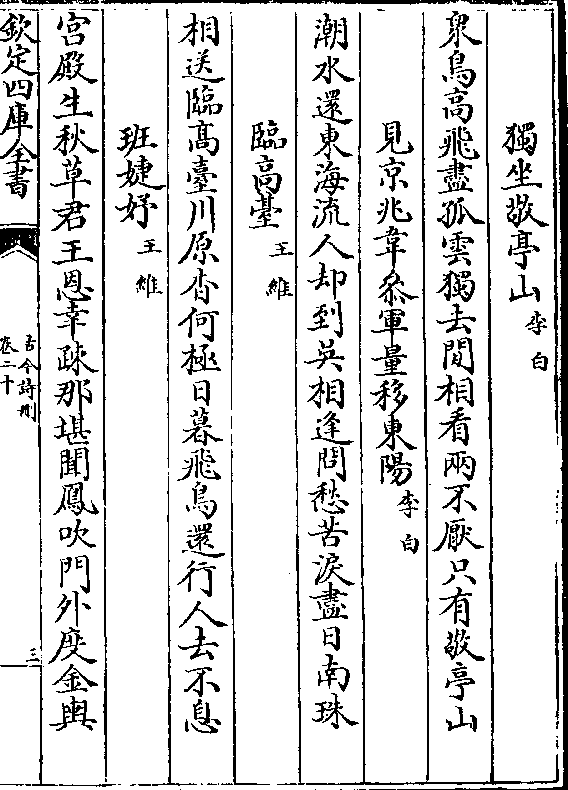 獨坐敬亭山李白
衆鳥高飛盡孤雲獨去閒相看兩不厭只有敬亭山
見京兆韋叅軍量移東陽李白
潮水還東海流人却到吳相逢問愁苦淚盡日南珠
臨高臺王維
相送臨高臺川原杳何極日暮飛鳥還行人去不息
班婕妤王維
宮殿生秋草君王恩幸疎那堪聞鳳吹門外度金輿
欽定四庫全書
古今詩刪
卷二十
三